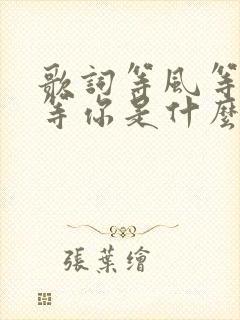 歌詞等風等
等你是什麼
張葉繪